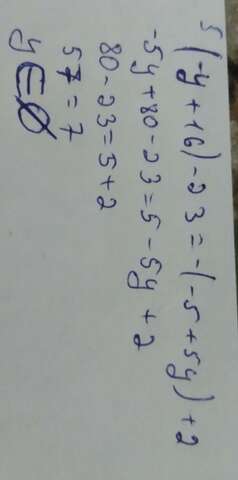 5(-y+16)-23=-(-5+5y)+2
-5y+80-23=5-5y+2
80-23=5+2
57=7
y∈Ø